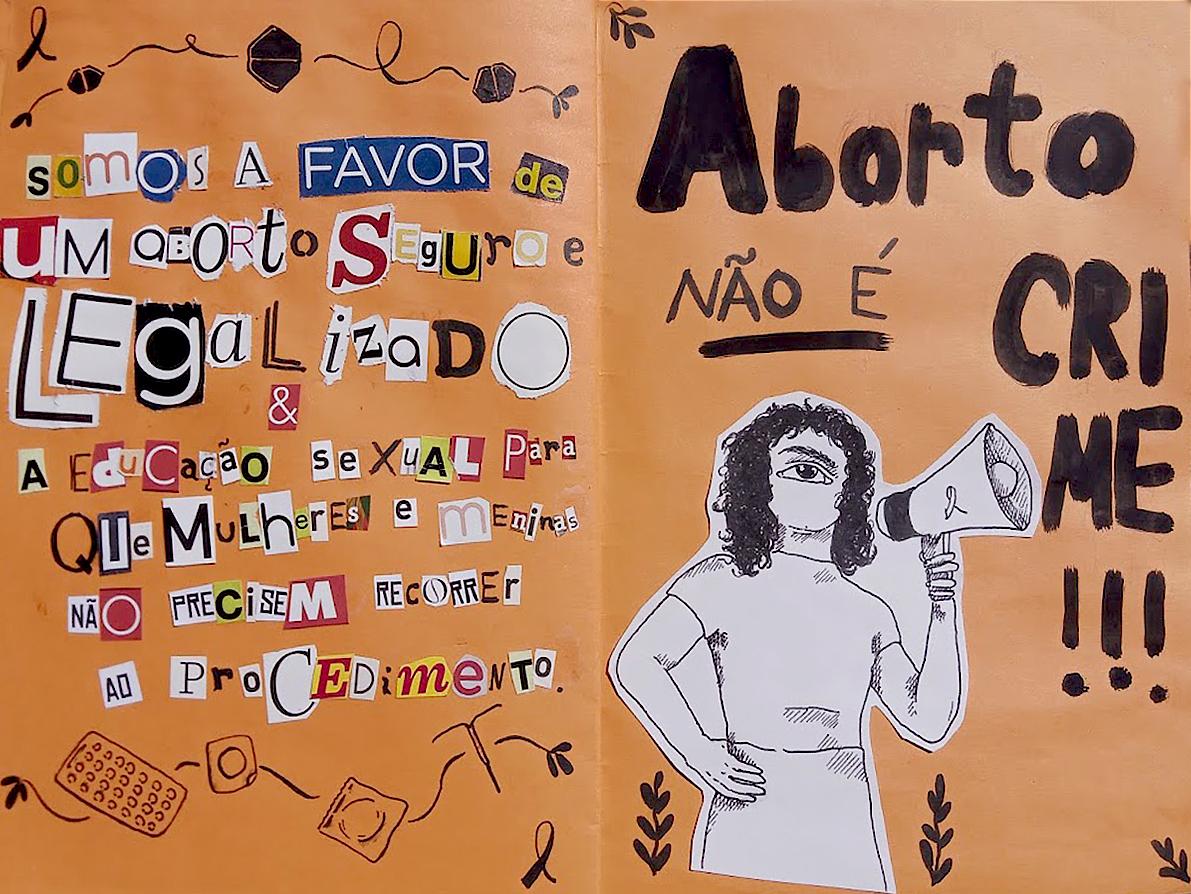 somos A FAVOR de
UM aBORto SEgUro e
LEgaLizaDO
&
A EduCação seXUAL Para
QUe MulherEs e mENinas
NÃO PRECiSEM RECORRER
AO ProCEDimeNTO.
Aborto
NÃO É CRI
ME
!!!